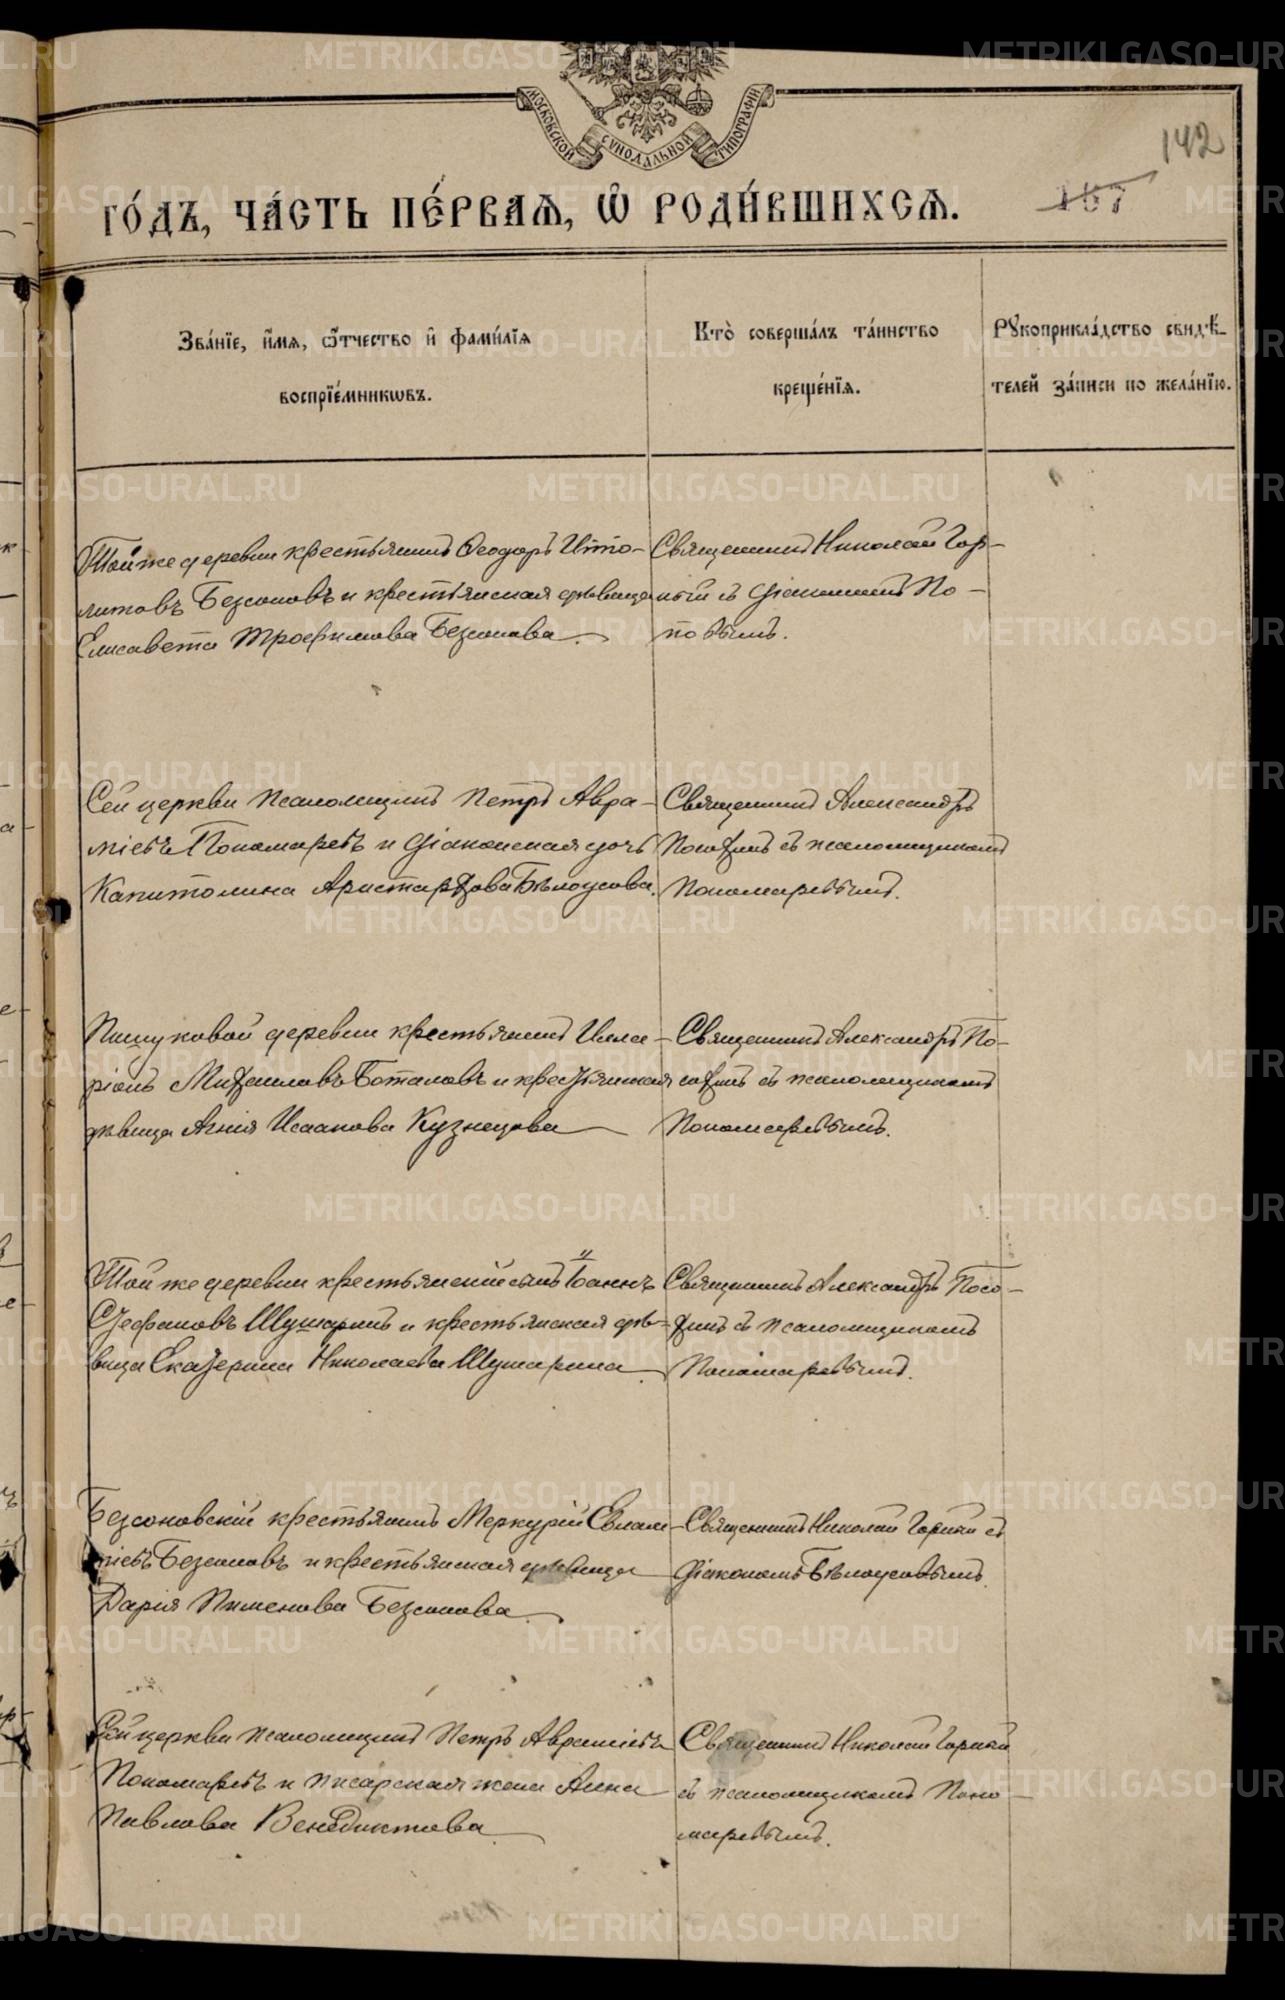 МОСКОВСКОЙ СѴНОДАЛЬНОЙ ТИПОГРАФІИ
142
157
ГО́ДЪ, ЧА́СТЬ ПЕ́РВАѦ, Ѽ РОДИ́ВШИХСѦ.
Зва́нїе, и҆́мѧ, ѻ҆́тчество и҆ фами́лїѧ
воспрїе́мникѡвъ.
Кто̀ соверша́лъ та́инство
креще́нїѧ.
Рꙋкоприкла́дство свидѣ́-
телей за́писи по жела́нїю.
Той же деревни крестьянинъ Ѳеодоръ Иппо-
литовъ Безсоновъ и крестьянская дѣвица
Елисавета Трофимова Безсонова.
Священникъ Николай Гор-
ный съ діакономъ По-
повымъ.
Сей церкви псаломщикъ Петръ Авра-
міевъ Пономаревъ и діаконская дочь
Капитолина Аристархова Бѣлоусова.
Священникъ Александръ
Посохинъ съ псаломщикомъ
Пономаревымъ.
Пищуковой деревни крестьянинъ Илла-
ріонъ Михаиловъ Боталовъ и крестьянская
дѣвица Агнія Исаакова Кузнецова
Священникъ Александръ По-
сохинъ съ псаломщикомъ
Пономаревымъ.
Той же деревни крестьянскій сынъ Іоаннъ
Стефановъ Шушаринъ и крестьянская дѣ-
вица Екатерина Николаева Шушарина.
Священникъ Александръ Посо-
хинъ съ псаломщикомъ
Пономаревымъ.
Безсоновскій крестьянинъ Меркурій Евлам-
піевъ Безсоновъ и крестьянская дѣвица
Дарія Пименова Безсонова.
Священникъ Николай Горный съ
діакономъ Бѣлоусовымъ.
Сей церкви псаломщикъ Петръ Авраміевъ
Пономаревъ и писарская жена Анна
Павлова Венедиктова
Священникъ Николай Горный
съ псаломщикомъ Поно-
маревымъ.